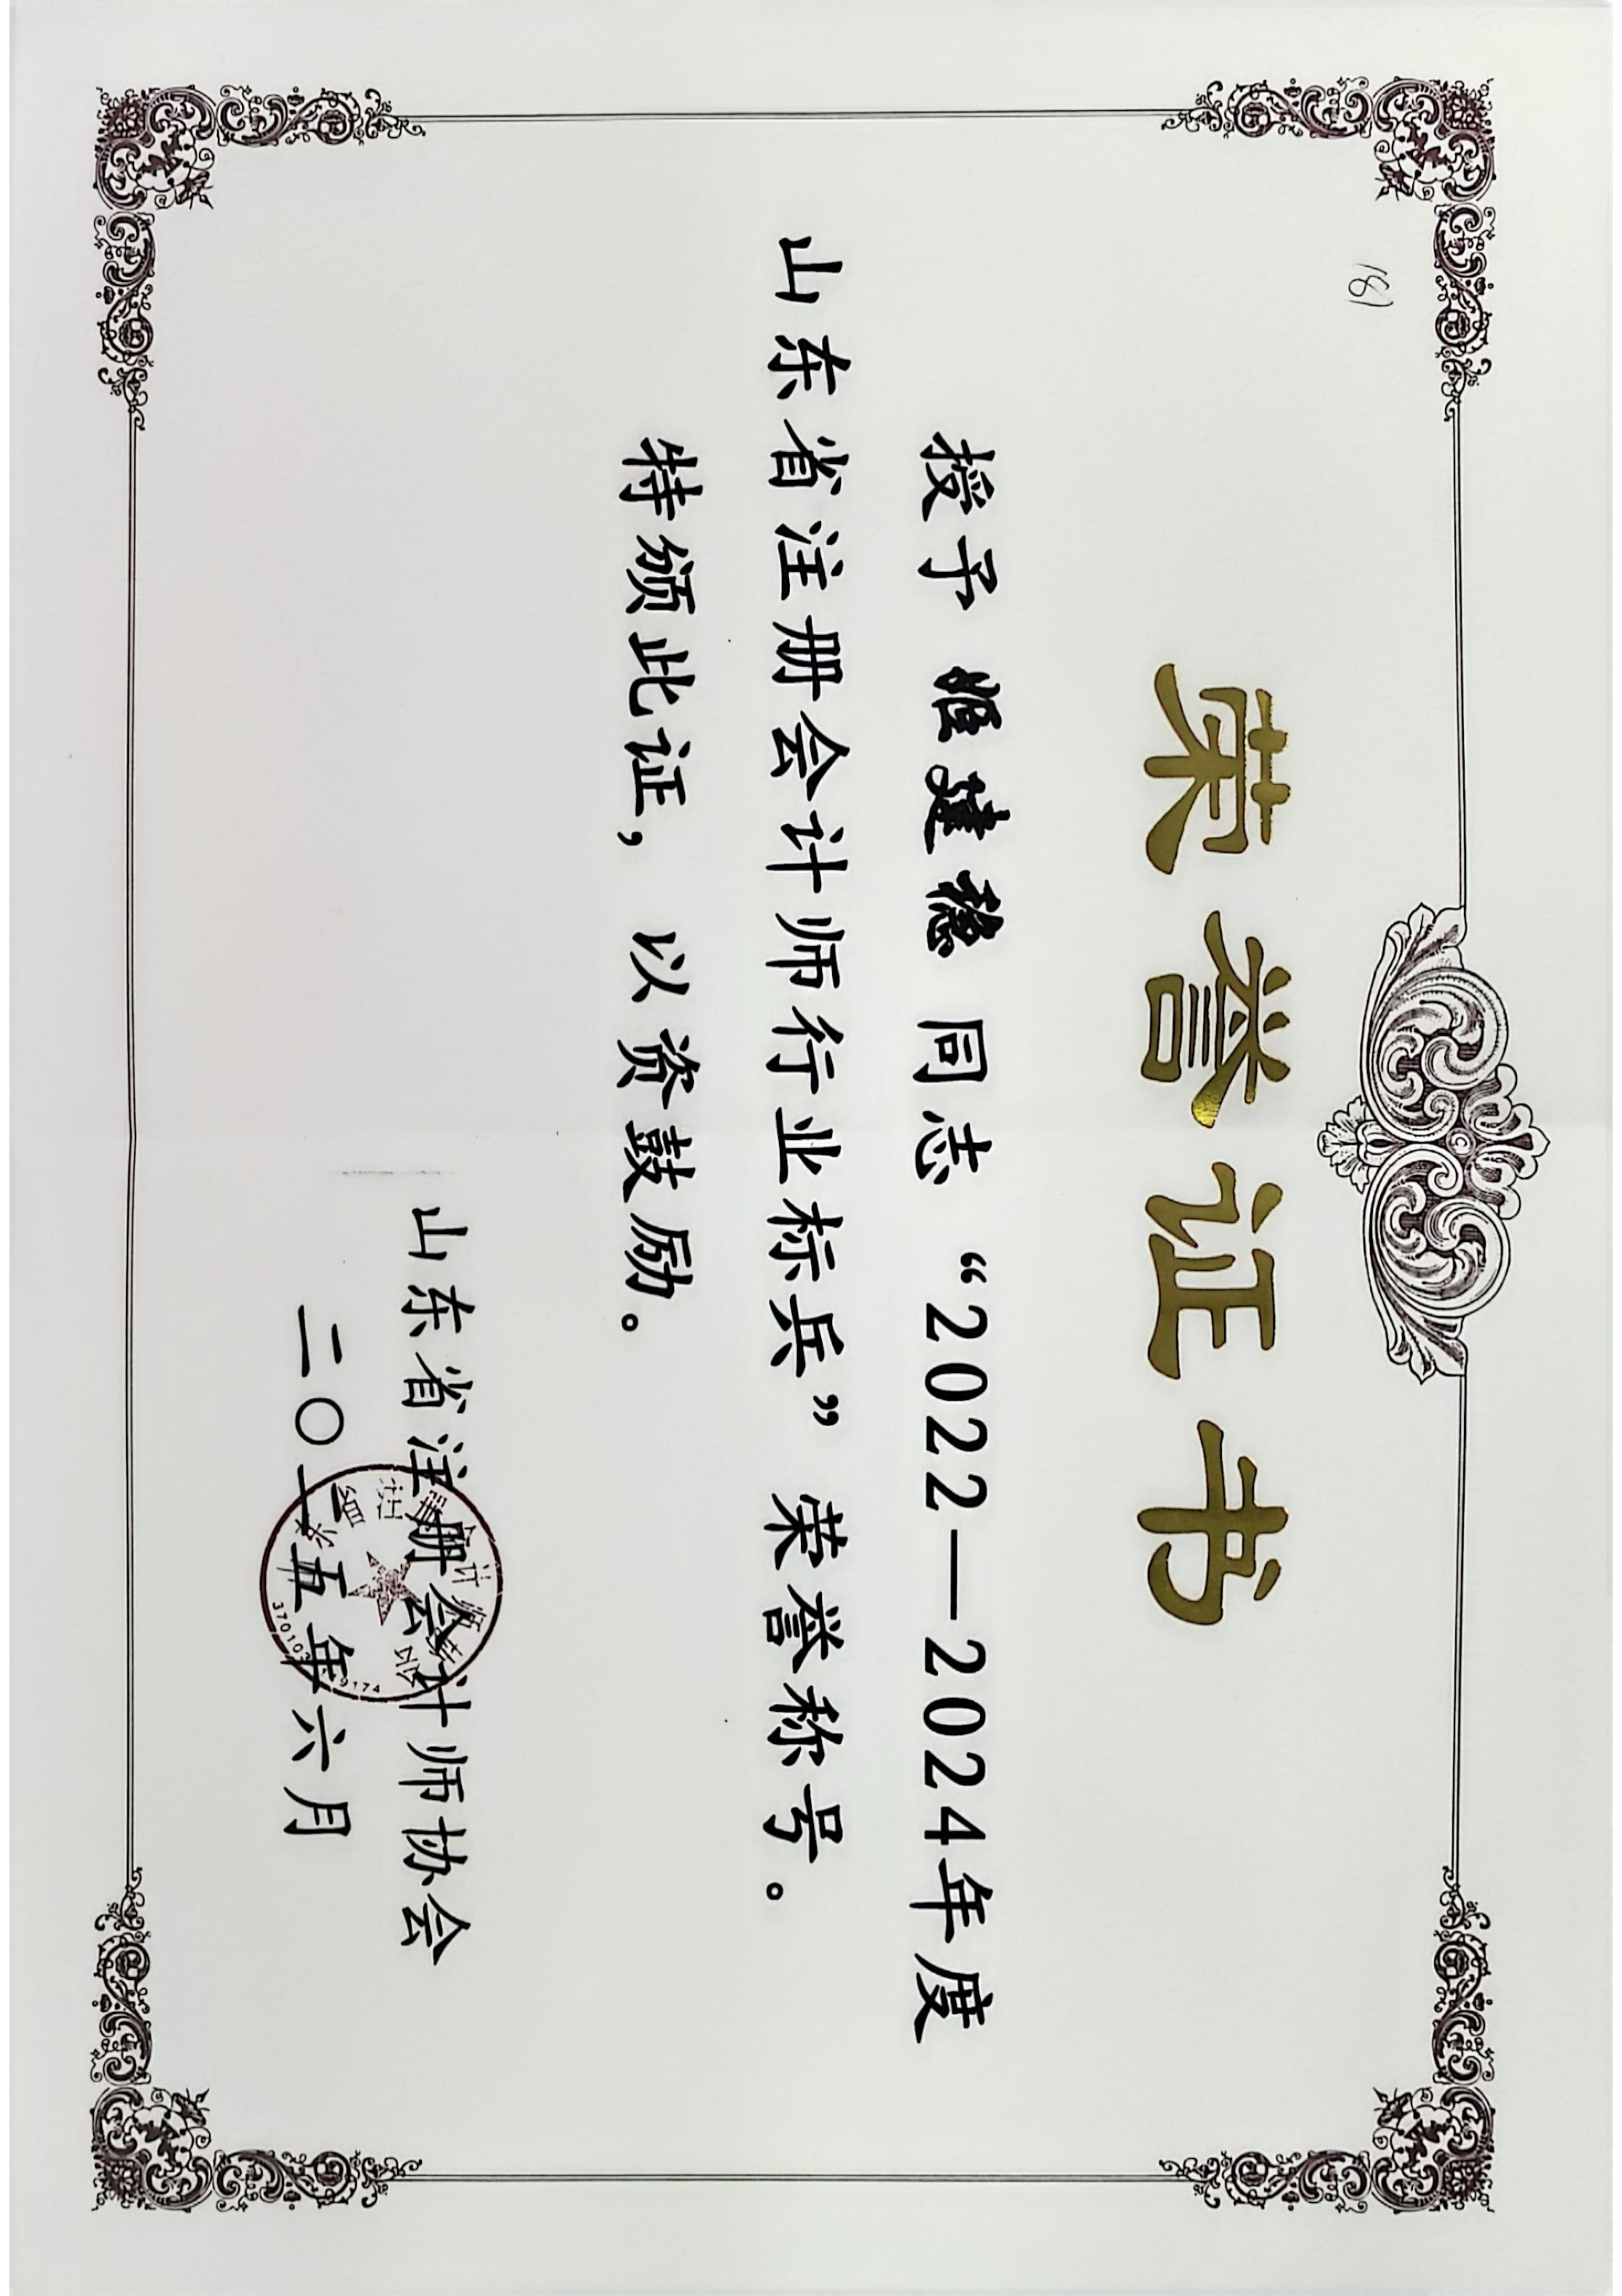 181
荣誉证书
授予 姬建稳 同志 “2022—2024年度
山东省注册会计师行业标兵” 荣誉称号。
特颁此证，以资鼓励。
山东省注册会计师协会
二〇二五年六月